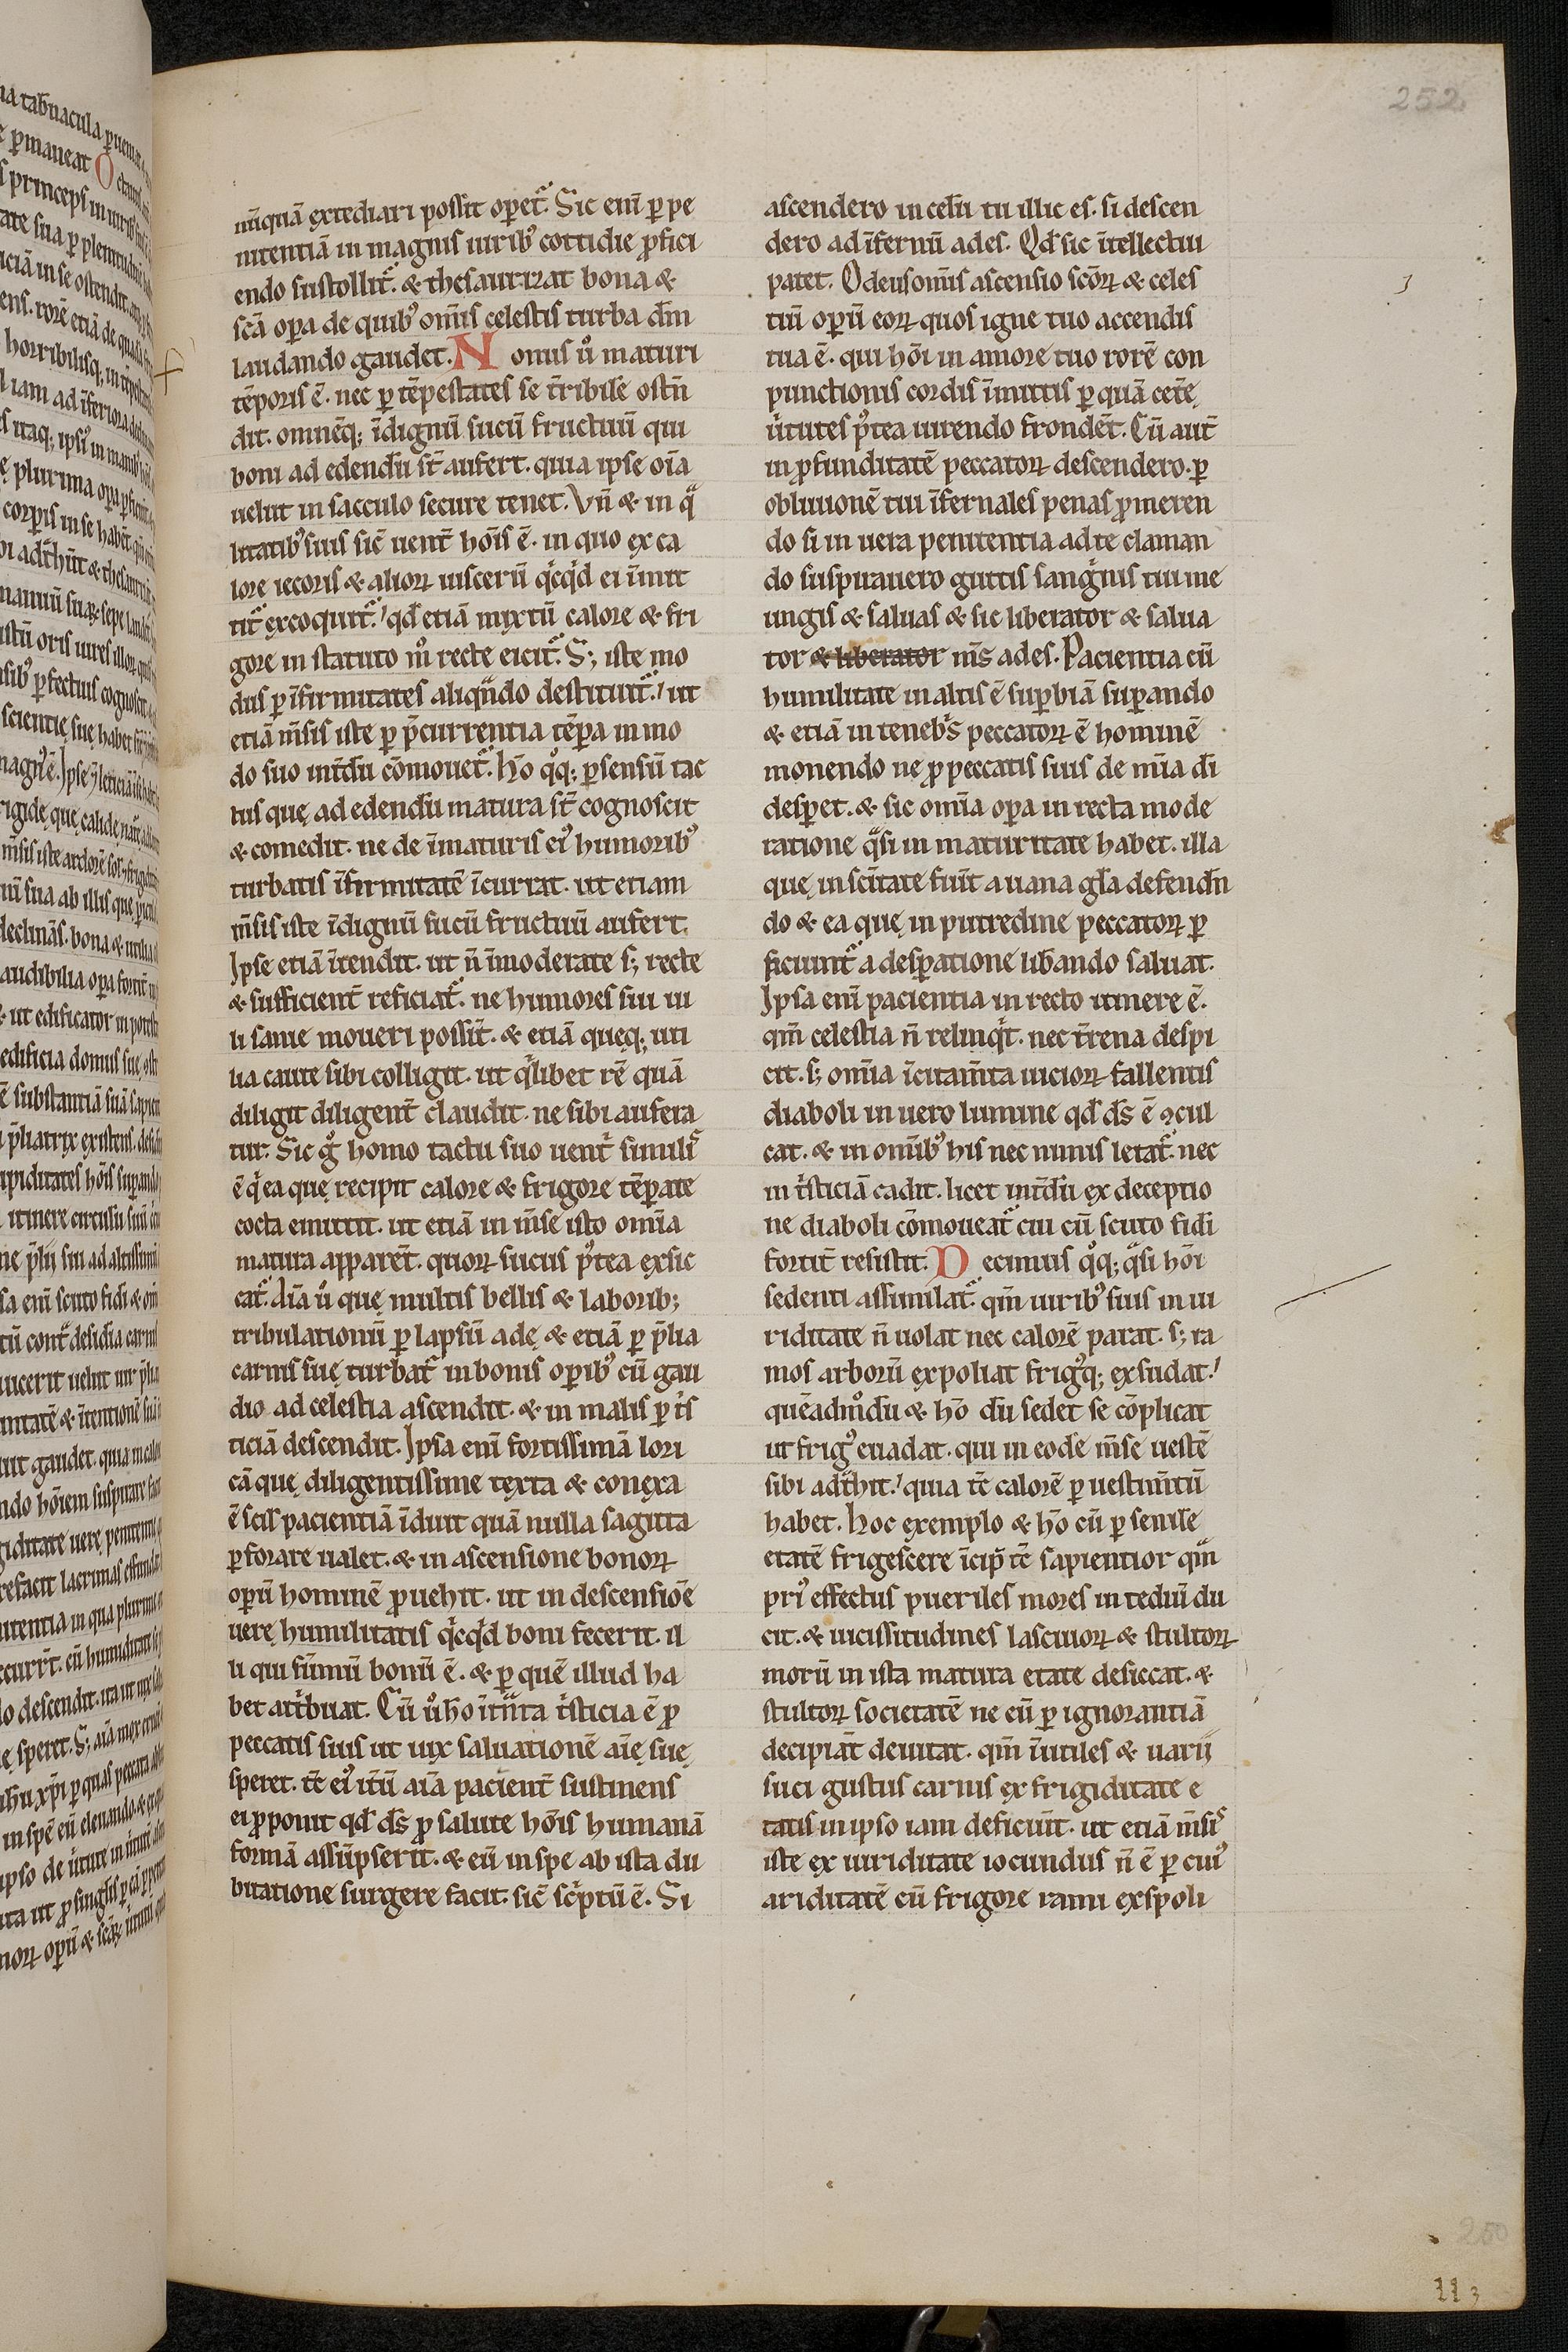 252
nūquā extediari possit operet̃. Sic enī ꝑ pe
nitentiā in magnis uirib᷒ cottidie ꝓfici
endo sustollit̃. & thesaurizat bona &
sc̄a oꝑa de quib᷒ om̄is celestis turba dm̄
laudando gaudet. Nonus u͛o maturi
tēporis ē. nec ꝑ tēpestates se t̄ribile ostn̄
dit. omnēq; īdignū sucū fructuū qui
boni ad edendū st̄ aufert. quia ipse oīa
uelut in sacculo secure tenet. Vn̄ & in q̈
litatib᷒ suis sic̄ uent̄ hōis ē. in quo ex ca
lore iecoris & alioꝝ uiscerū qͥcqͥd ei īmit
tit̃ excoquit̃. qd̄ etiā mixtū calore & fri
gore in statuto m͛o recte eicit̃. S; iste mo
dus ꝑ īfirmitates aliqn̄do destituit̃. ut
etiā m̄sis iste ꝑ p̄currentia tēꝑa in mo
do suo int̄dū cōmouet̃. hō qͦq; ꝑ sensū tac
tus quę ad edendū matura st̄ cognoscit
& comedit. ne de īmaturis ei᷒ humorib᷒
turbatis īfirmitatē īcurrat. ut etiam
m̄sis iste īdignū sucū fructuū aufert.
Ipse etiā ītendit. ut n̄ īmoderate s; recte
& sufficient̄ reficiat̃. ne humores sui in
li sanie moueri possit̄. & etiā queq; uti
lia caute sibi colligit. ut qͥlibet rē quā
diligit diligent̄ claudit. ne sibi aufera
tur. Sic gͦ homo tactu suo uent͛ simil᷒
ē qͥ ea quę recipit calore & frigore tēꝑate
cocta emittit. ut etiā in m̄se isto omīa
matura apparēt. quoꝝ sucus p͛tea exsic
cat̃. Aīa u͛ quę multis bellis & laborib;
tribulationū ꝑ lapsū adę & etiā ꝑ p̄lia
carnis suę turbat̃ in bonis oꝑib᷒ cū gau
dio ad celestia ascendit. & in malis ꝑ tͥs
ticiā descendit. Ipsa enī fortissimā lori
cā quę diligentissime texta & conexa
ē scił pacientiā īduit quā nulla sagitta
ꝑforare ualet. & in ascensione bonoꝝ
oꝑū hominē ꝓuehit. ut in descensiōe
uerę humilitatis qͥcqͥd boni fecerit. il
li qui sūmū bonū ē. & ꝑ quē illud ha
bet att͛buat. Cū u͛o hō ītn̄ta tͥsticia ē ꝓ
peccatis suis ut uix saluationē aīę suę
speret. tc̄ ei᷒ itū aīa pacient̄ sustinens
ei ꝓponit qd̄ ds̄ ꝓ salute hōis humanā
formā assūpserit. & eū in spe ab ista du
bitatione surgere facit. sic̄ scͥptū ē. Si
ascendero in celū tu illic es. si descen
dero ad īfernū ades. Qd̄ sic ītellectui
patet. O deus om̄is ascensio sc̄oꝝ & celes
tiū oꝑū eoꝝ quos igne tuo accendis
tua ē. qui hōi in amore tuo rorē con
punctionis cordis īmittis ꝑ quā cetę
u͛tutes p͛tea uirendo frondēt. Cū aut̄
in ꝓfunditatē peccatoꝝ descendero. ꝑ
obliuionē tui īfernales penas ꝓmeren
do si in uera penitentia ad te claman
do suspirauero guttis sangͥnis tui me
ungis & saluas & sic liberator & salua
tor & liberator m̄s ades. Pacientia cū
humilitate in altis ē suꝑbiā suꝑando
& etiā in tenebͥs peccatoꝝ ē hominē
monendo ne ꝓ peccatis suis de mīa dī
desꝑet. & sic omīa oꝑa in recta mode
ratione q̈si in maturitate habet. illa
quę in sc̄itate fuit̄ a uana gła defendn̄
do & ea quę in putredine peccatoꝝ ꝑ
ficiunt̃ a desꝑatione lib̄ando saluat.
Ipsa enī pacientia in recto itinere ē.
qm̄ celestia n̄ relinqͥt. nec t̄rena despi
cit. s; omīa īcitam̄ta uicioꝝ fallentis
diaboli in uero lumine qd̄ ds̄ ē ꝯcul
cat. & in omīb᷒ his nec nimis letat̃. nec
in tͥsticiā cadit. licet int̄dū ex deceptio
ne diaboli cōmoueat̃ cui cū scuto fidi
fortit̄ resistit. Decimus qͦq; q̈si hōi
sedenti assimilat̃. qm̄ uirib᷒ suis in ui
riditate n̄ uolat nec calorē parat. s; ra
mos arborū expoliat frig᷒q; exsudat.
quēadmͦdū & hō dū sedet se cōplicat
ut frig᷒ euadat. qui in eodē m̄se uestē
sibi adt̄hit. quia tc̄ calorē ꝑ uestim̄tū
habet. hoc exemplo & hō cū ꝑ senilē
etatē frigescere īcip̄ tc̄ sapientior qm̈
pri᷒ effectus pueriles mores in tediū du
cit. & uicissitudines lasciuoꝝ & stultoꝝ
morū in ista matura etate desiccat. &
stultoꝝ societatē ne eū ꝑ ignorantiā
decipiāt deuitat. qm̄ īutiles & uarij
suci gustus carnis ex frigiditate e
tatis in ipso iam deficiūt. ut etiā m̄si᷒
iste ex uiriditate iocundus n̄ ē ꝑ cui᷒
ariditatē cū frigore rami exspoli
250
113